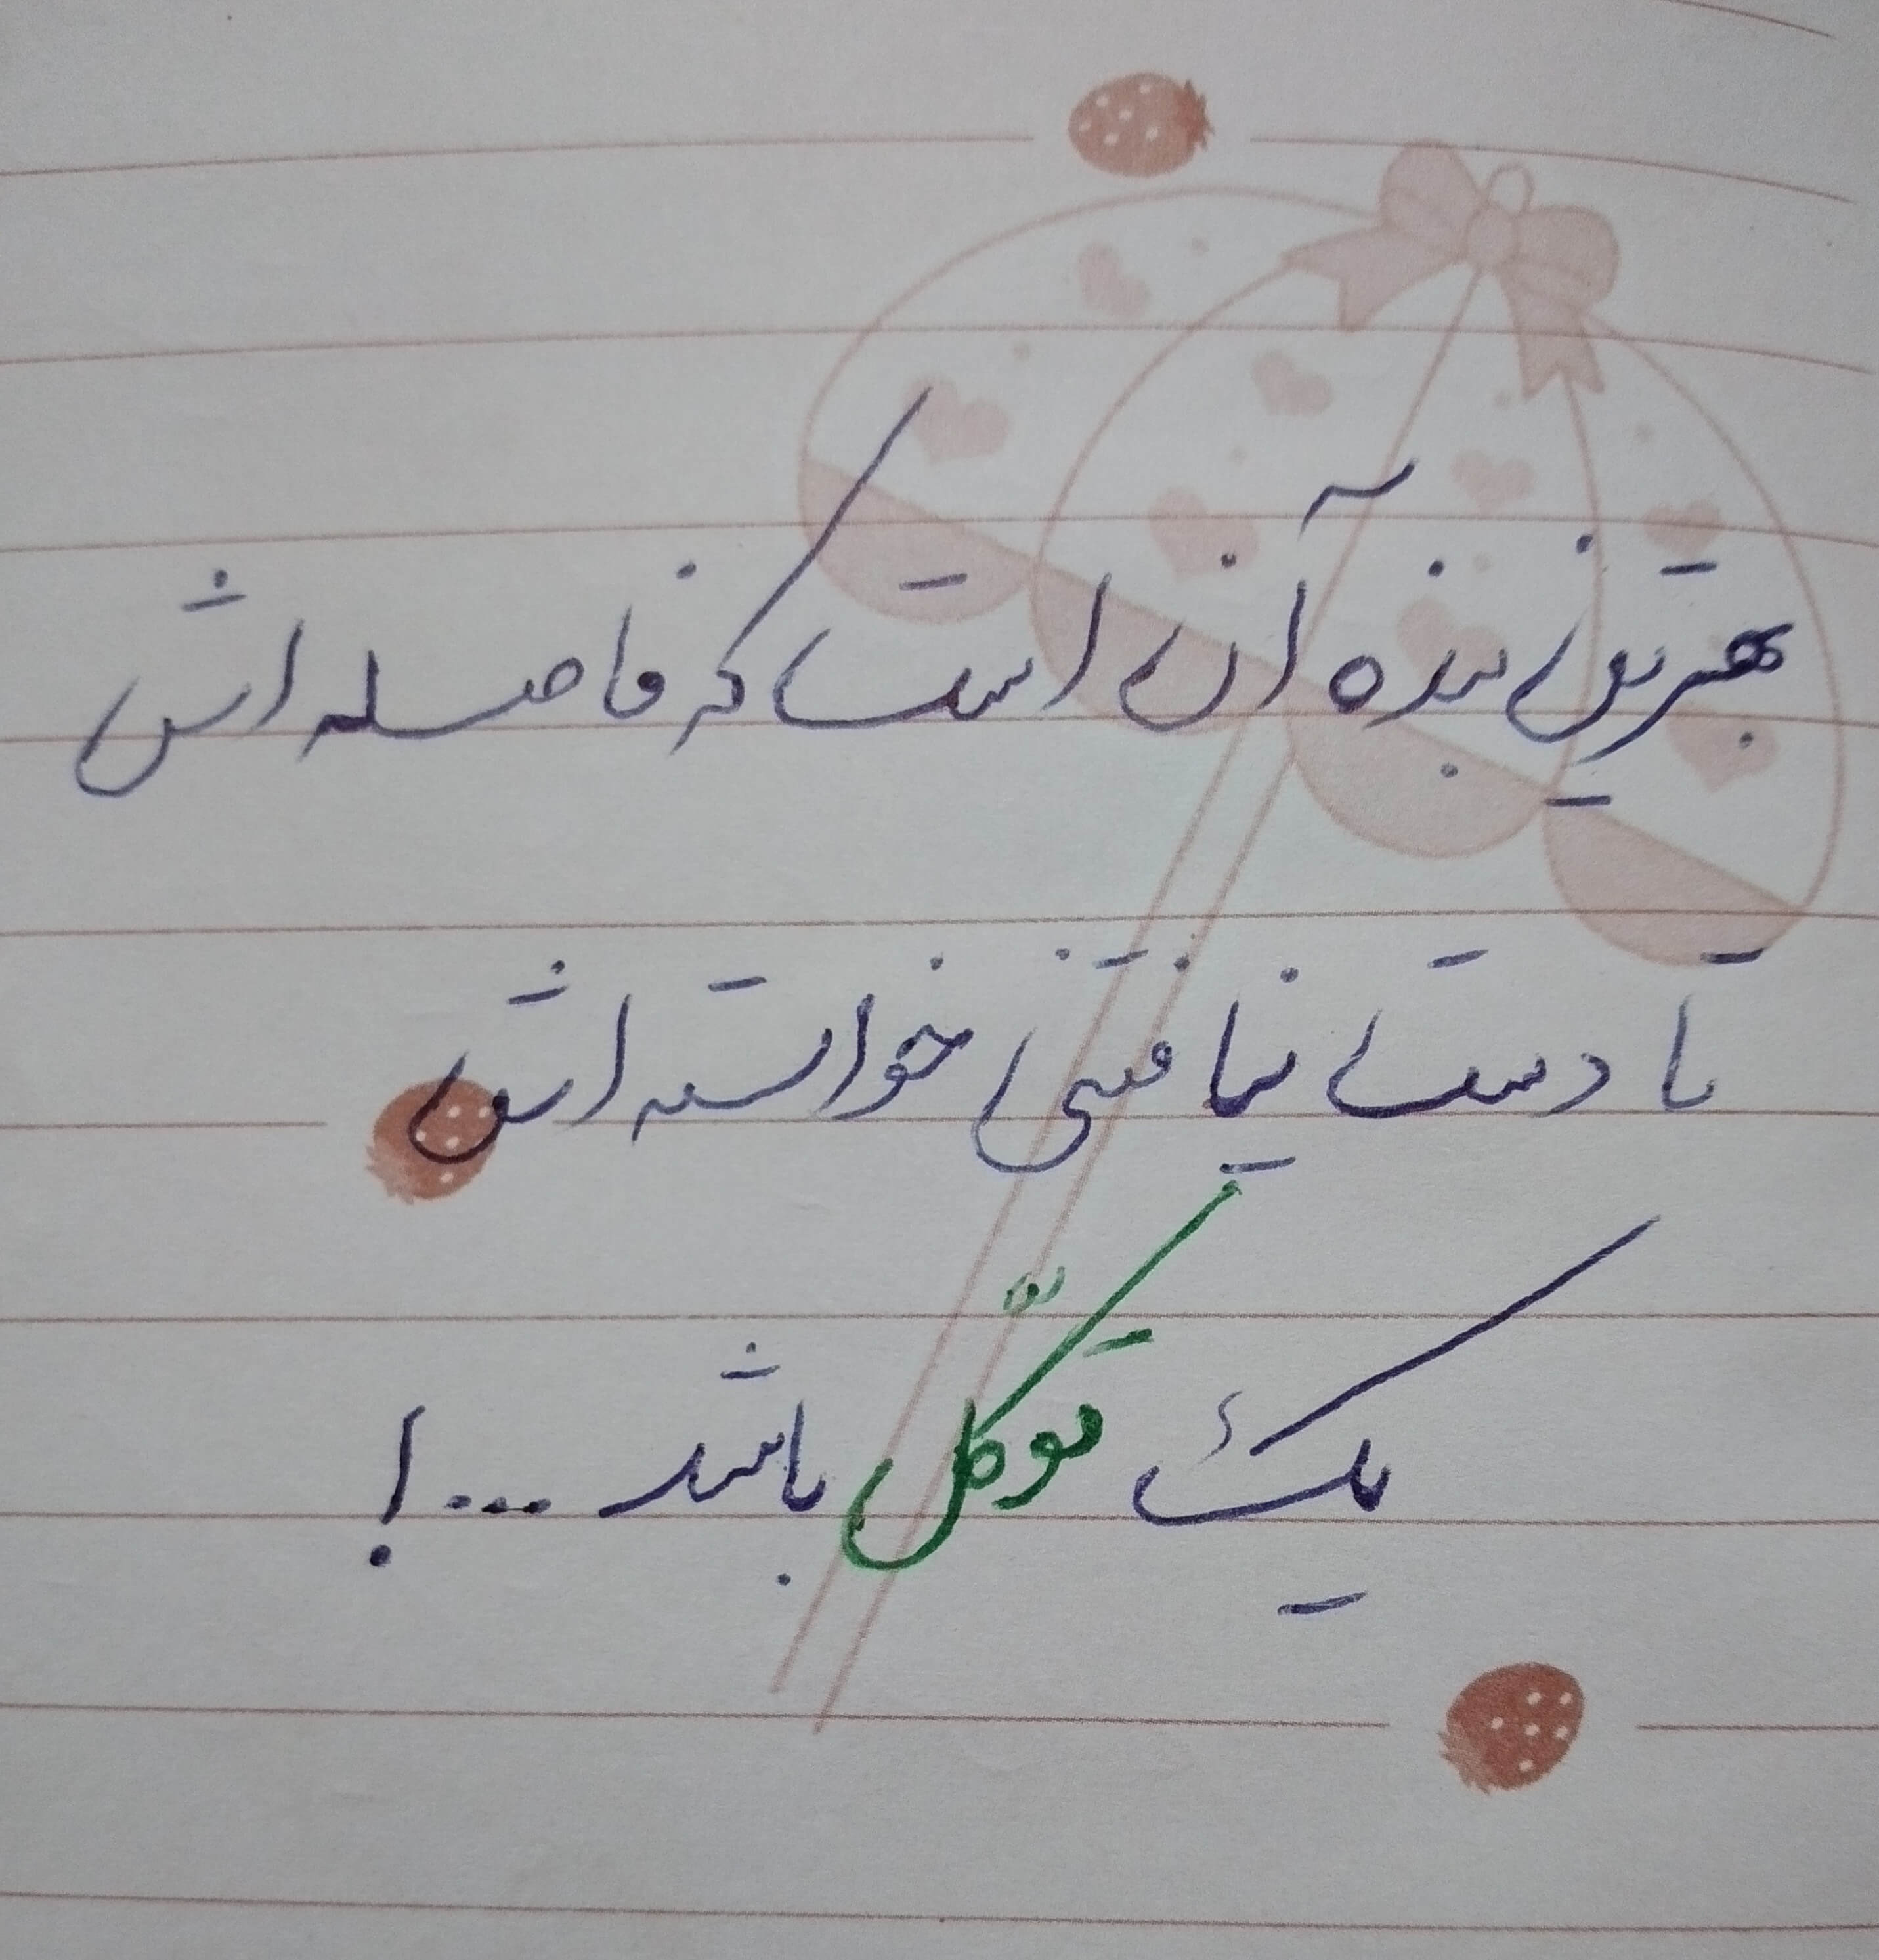 بهترین بنده آن است که فاصله اش
تا دست نیافتنی خواسته اش
یک توکّل باشد ...!